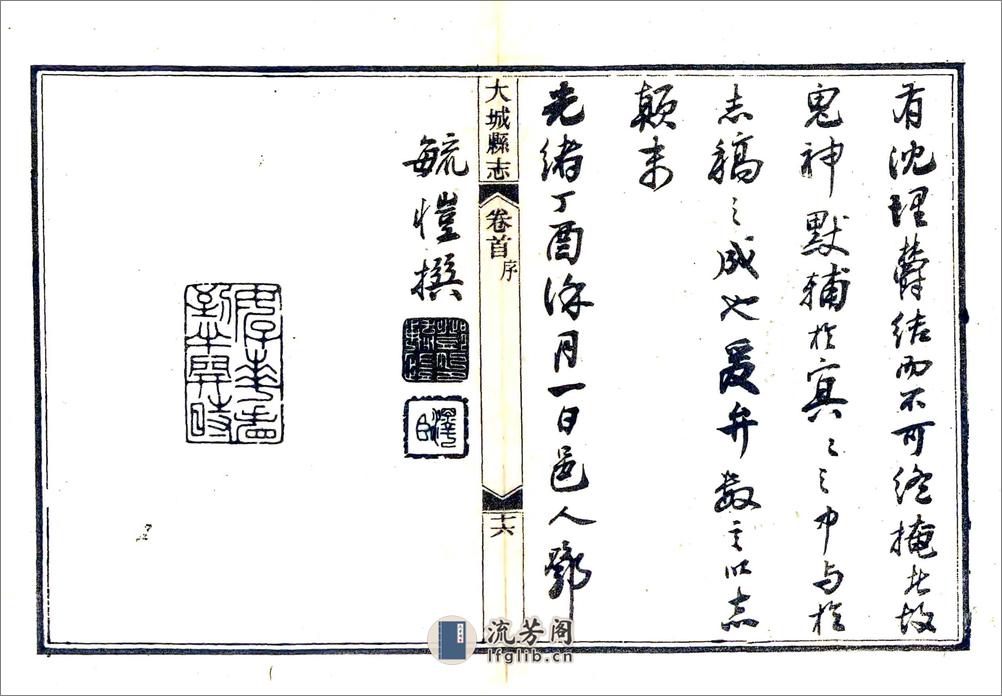 有沈埋欝结而不可终掩者故
鬼神默辅於冥冥之中与於
志稿之成也爰弁数言以志
颠末
光绪丁酉涂月一日邑人邓
毓愷撰
澤臣
大城縣志
卷首
序
十六
流芳阁
lfglib.cn